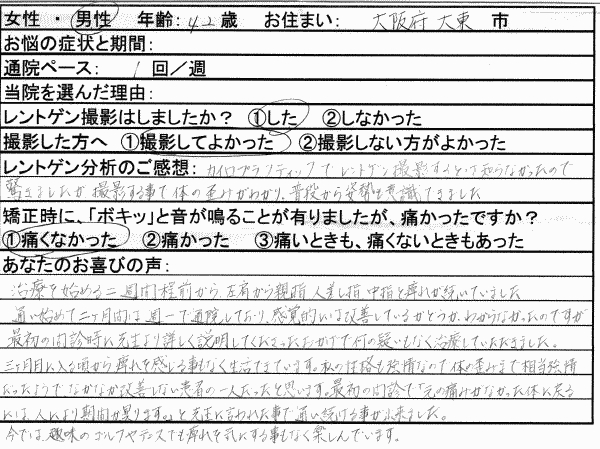 女性 ・ 男性 年齢: 42 歳 お住まい: 大阪府 大東 市
お悩の症状と期間:
通院ペース: 1 回／週
当院を選んだ理由:
レントゲン撮影はしましたか？ ①した ②しなかった
撮影した方へ ①撮影してよかった ②撮影しない方がよかった
レントゲン分析のご感想: カイロプラクティックでレントゲン撮影するとは知らなかったので
驚きましたが 撮影する事で体の歪みがわかり、普段から姿勢を意識できました
矯正時に、「ボキッ」と音が鳴ることが有りましたが、痛かったですか？
①痛くなかった ②痛かった ③痛いときも、痛くないときもあった
あなたのお喜びの声:
治療を始める二週間程前から 左肩から親指 人差し指 中指と痺れが続いていました
通い始めて二ヶ月間は週一で通院しており、感覚的には改善しているかどうか、わからなかったのですが
最初の問診時に先生より詳しく説明してくださったおかげで何の疑いもなく治療していただきました。
三ヶ月目に入る頃から痺れを感じる事もなく生活できています。私の性格も強情なので体の歪みまで相当強情
だったようでなかなか改善しない患者の一人だったと思います。最初の問診で「元の痛みがなかった体に戻る
には、人により期間が異ります。」と先生に言われた事で通い続ける事が出来ました。
今では、趣味のゴルフやテニスでも痺れを気にする事もなく楽しんでいます。